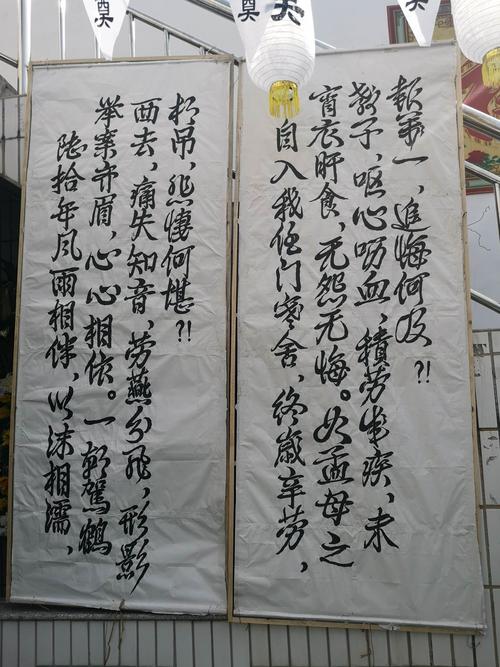 奠
奠
陸拾年风雨相伴,以沫相濡,
举案齐眉,心心相依。一朝駕鶴
西去,痛失知音,劳燕分飛,形影
相吊,悲悽何堪?!
自入我伍门寒舍,终歲辛劳,
宵衣旰食,无怨无悔。如孟母之
教子,呕心呖血,積劳成疾,未
報萬一,追悔何及?!